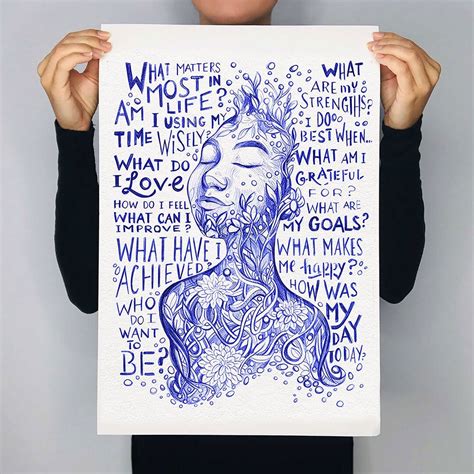 WHAT MATTERS
MOST IN
LIFE?
AM I USING MY
TIME WISELY?
WHAT DO
I LOVE
HOW DO I FEEL
WHAT CAN I
IMPROVE?
WHAT HAVE I
ACHIEVED?
WHO
DO I
WANT
TO
BE?
WHAT
ARE MY
STRENGTHS?
I DO
BEST WHEN...
WHAT AM I
GRATEFUL
FOR?
WHAT ARE
MY GOALS?
WHAT MAKES
ME happy?
HOW WAS
MY
DAY
TODAY?